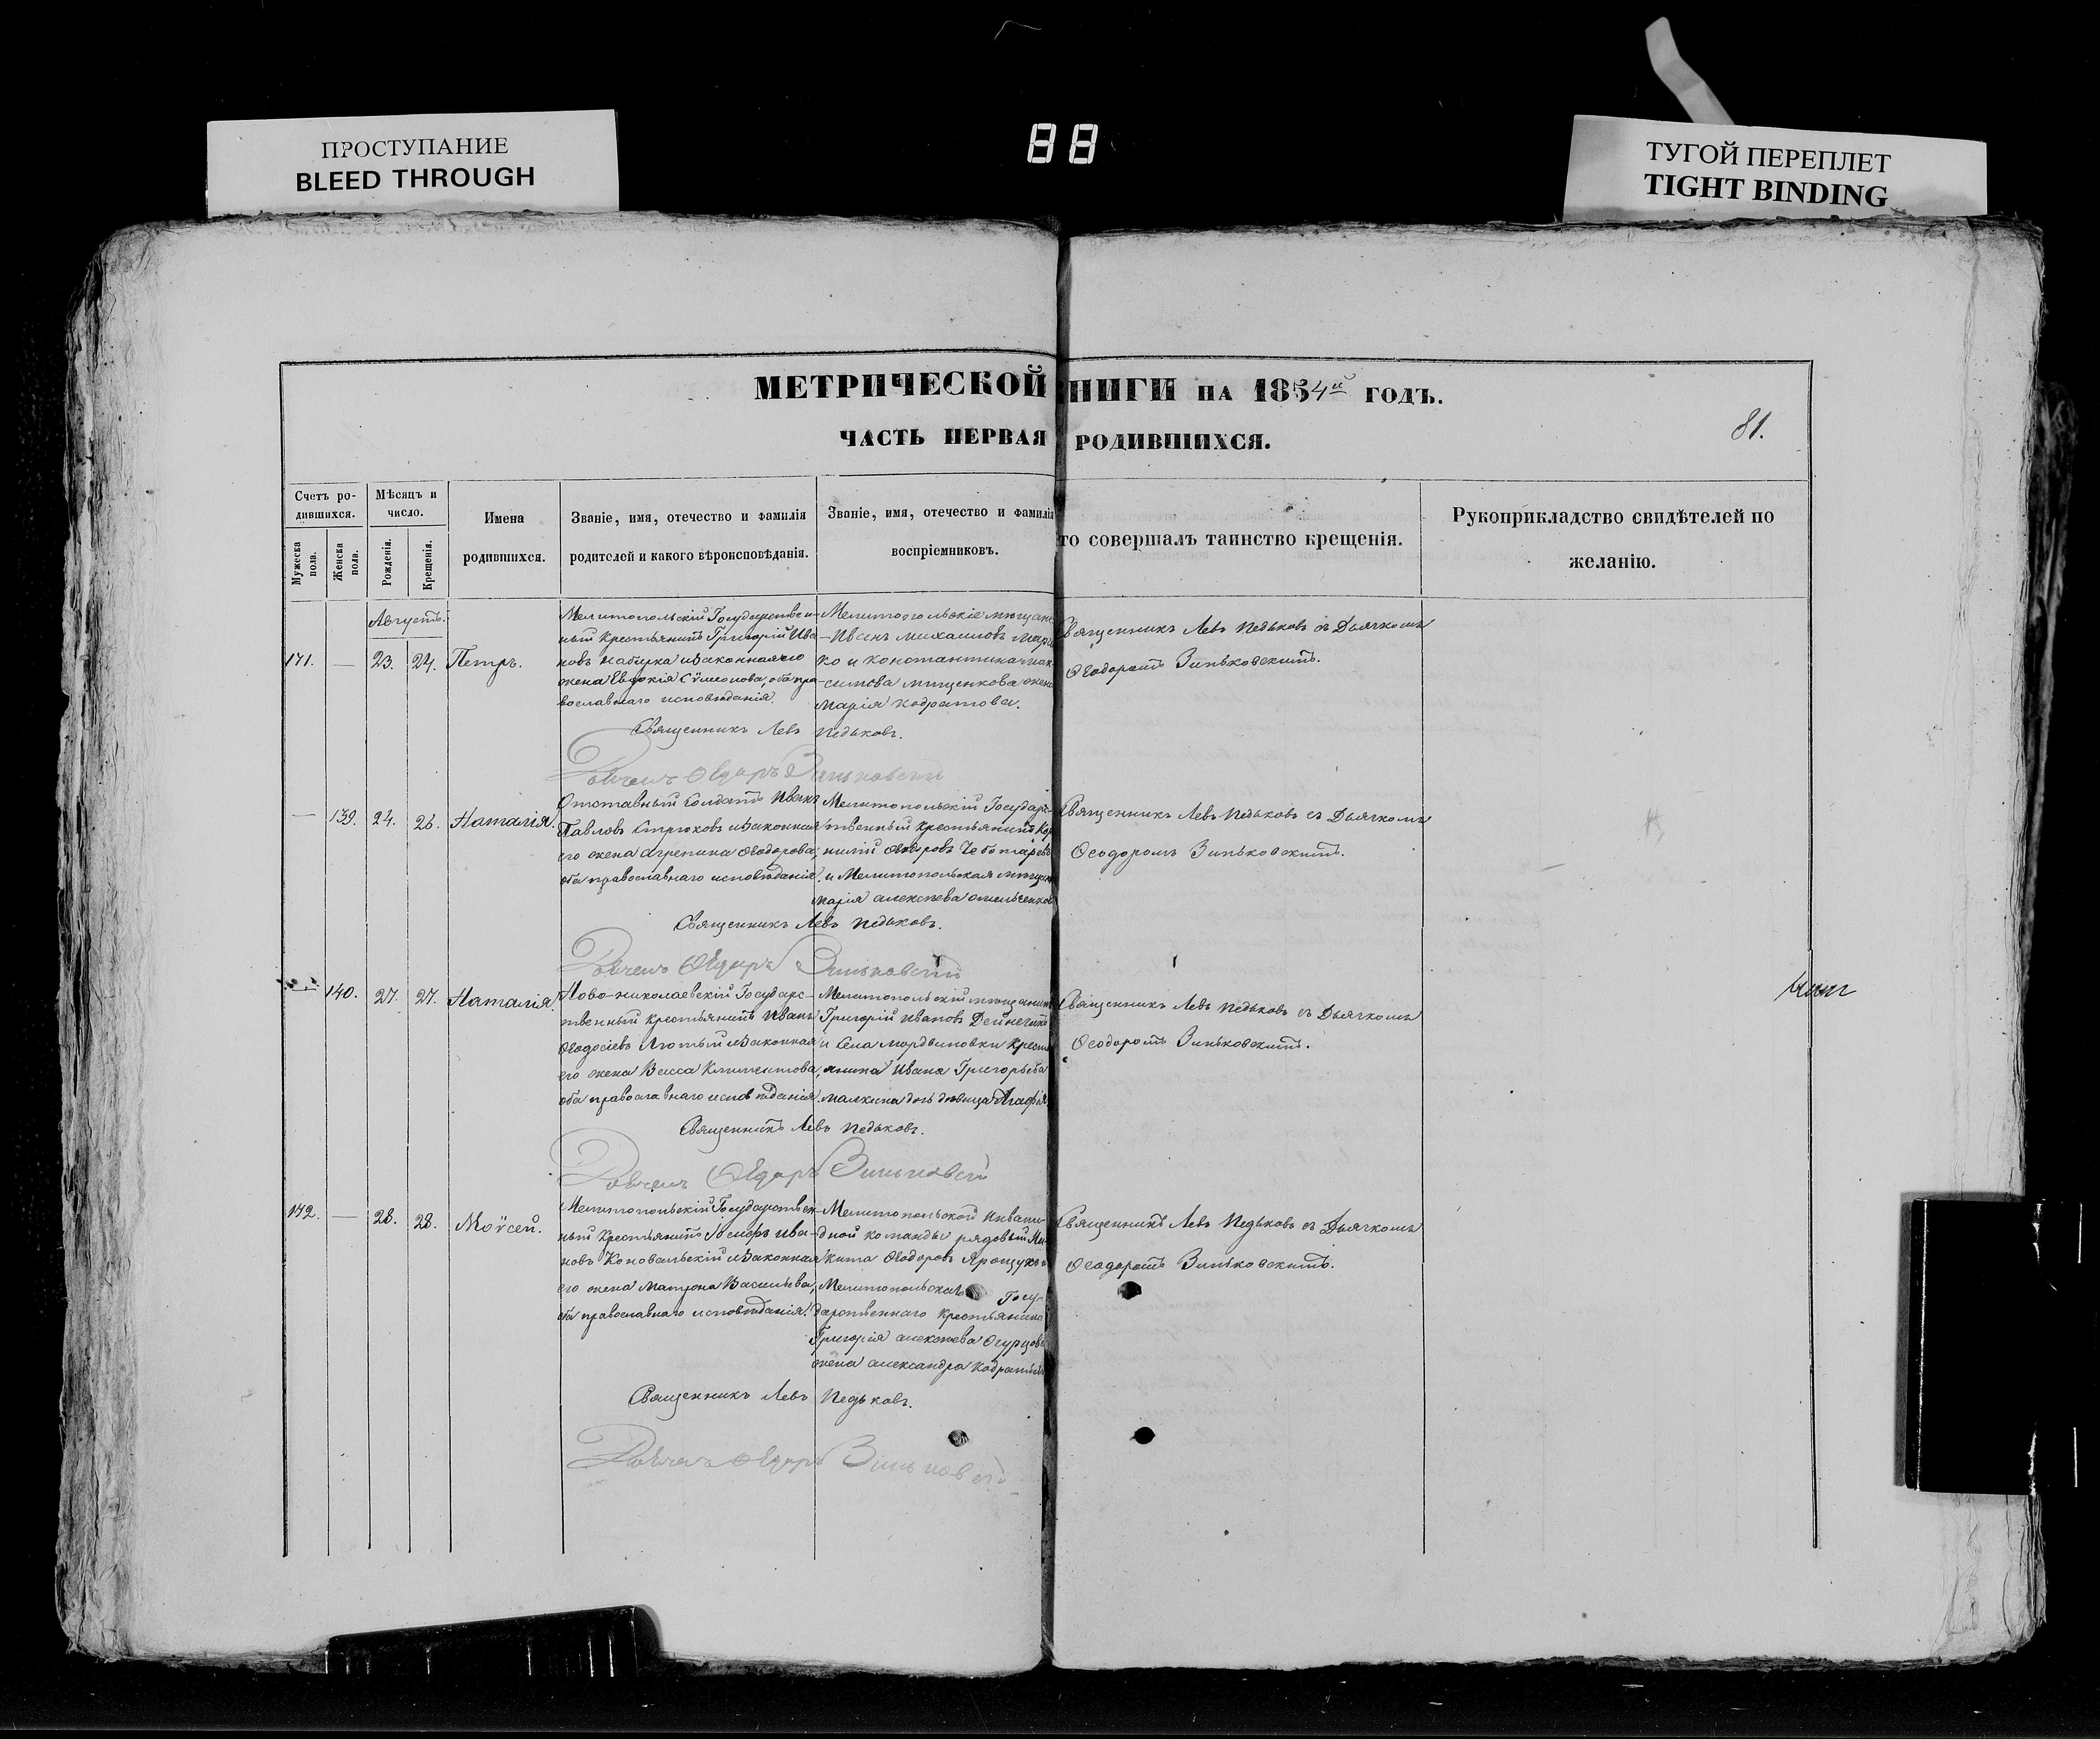 ПРОСТУПАНИЕ
BLEED THROUGH
88
ТУГОЙ ПЕРЕПЛЕТ
TIGHT BINDING
МЕТРИЧЕСКОЙ НИГИ НА 1854й ГОДЪ.
ЧАСТЬ ПЕРВАЯ РОДИВШИХСЯ.
81.
Счетъ ро-
дившихся.
Мужеска пола.
Женска пола.
Мѣсяцъ и
число.
Рожденія.
Крещенія.
Имена
родившихся.
Званіе, имя, отечество и фамилія
родителей и какого вѣроисповѣданія.
Званіе, имя, отечество и фамилія
воспріемниковъ.
то совершалъ таинство крещенія.
Рукоприкладство свидѣтелей по
желанію.
Августъ.
171. — 23. 24. Петръ.
Мелитопольскій Государствен-
ный крестьянинъ Григорій Ива
новъ и законная его
жена Евдокія Сѵмеонова, оба пра
вославнаго исповѣданія.
Мелитопольскіе мѣщане
Иванъ Михаиловъ
ко и Константина Мак
симова Мищенкова жена
Марія Кодратова.
Священникъ Левъ Педьковъ съ Дьячкомъ
Ѳеодоромъ Зиньковскимъ.
Священникъ Левъ Педьковъ.
Дьячекъ Ѳедоръ Зиньковскій
— 139. 24. 26. Наталія.
Отставный солдатъ Иванъ
Павловъ Стрюковъ и законная
его жена Агрепина Ѳеодорова,
оба православнаго исповѣданія.
Мелитопольскій Государс-
твенный крестьянинъ Кор
нилій Ѳедоровъ Чеботаревъ
и Мелитопольская мѣщан
Марія Алексѣева Омельченков
Священникъ Левъ Педьковъ съ Дьячкомъ
Ѳеодоромъ Зиньковскимъ.
Священникъ Левъ Педьковъ.
Дьячекъ Ѳедоръ Зиньковскій
— 140. 27. 27. Наталія.
Ново-николаевскій Государс-
твенный крестьянинъ Иванъ
Ѳеодосіевъ Лютый и законная
его жена Васса Климентова,
оба православнаго исповѣданія.
Мелитопольскій мѣщанинъ
Григорій Ивановъ
и села Мордвиновки крестья
янина Ивана Григорьева
Малкина дочь дѣвица Агафія.
Священникъ Левъ Педьковъ съ Дьячкомъ
Ѳеодоромъ Зиньковскимъ.
Священникъ Левъ Педьковъ.
Дьячекъ Ѳедоръ Зиньковскій
142. — 28. 28. Моѵсей.
Мелитопольскій Государствен-
ный крестьянинъ Іосифъ Ива-
новъ Коновальскій и законная
его жена Матрона Васильева,
оба православнаго исповѣданія.
Мелитопольской Инвали-
дной команды рядовый Ни
кита Ѳеодоровъ Ярощукъ и
Мелитопольскаго Госу-
дарственнаго крестьянина
Григорія Алексѣева Огурцова
жена Александра Кодратьева
Священникъ Левъ Педьковъ съ Дьячкомъ
Ѳеодоромъ Зиньковскимъ.
Священникъ Левъ Педьковъ.
Дьячекъ Ѳедоръ Зиньковскій